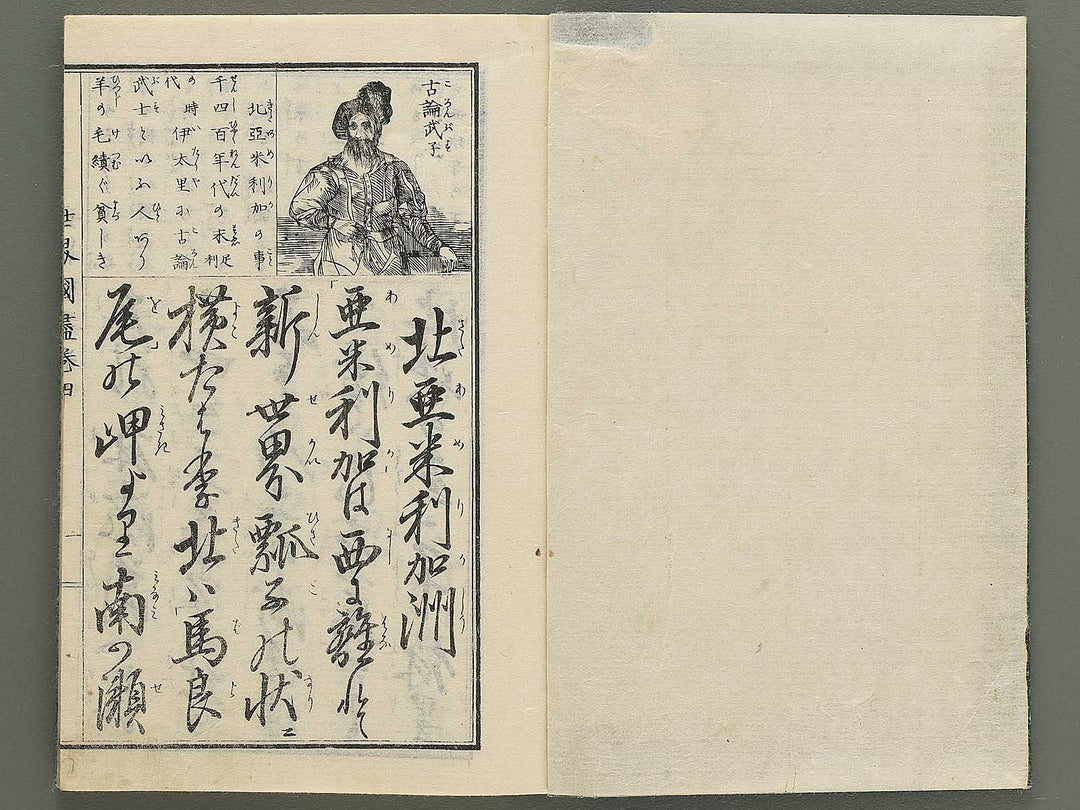 古論武子
北亜米利加の事
千四百年代の末
の時伊太里に古論
武士といふ人あり
羊の毛績ぐ貧しき
北亜米利加洲
亜米利加は西に離れて
新世界瓢子の状ニ
横たはる李北ハ馬良
尾の岬より南の瀬
世界國盡巻四
一